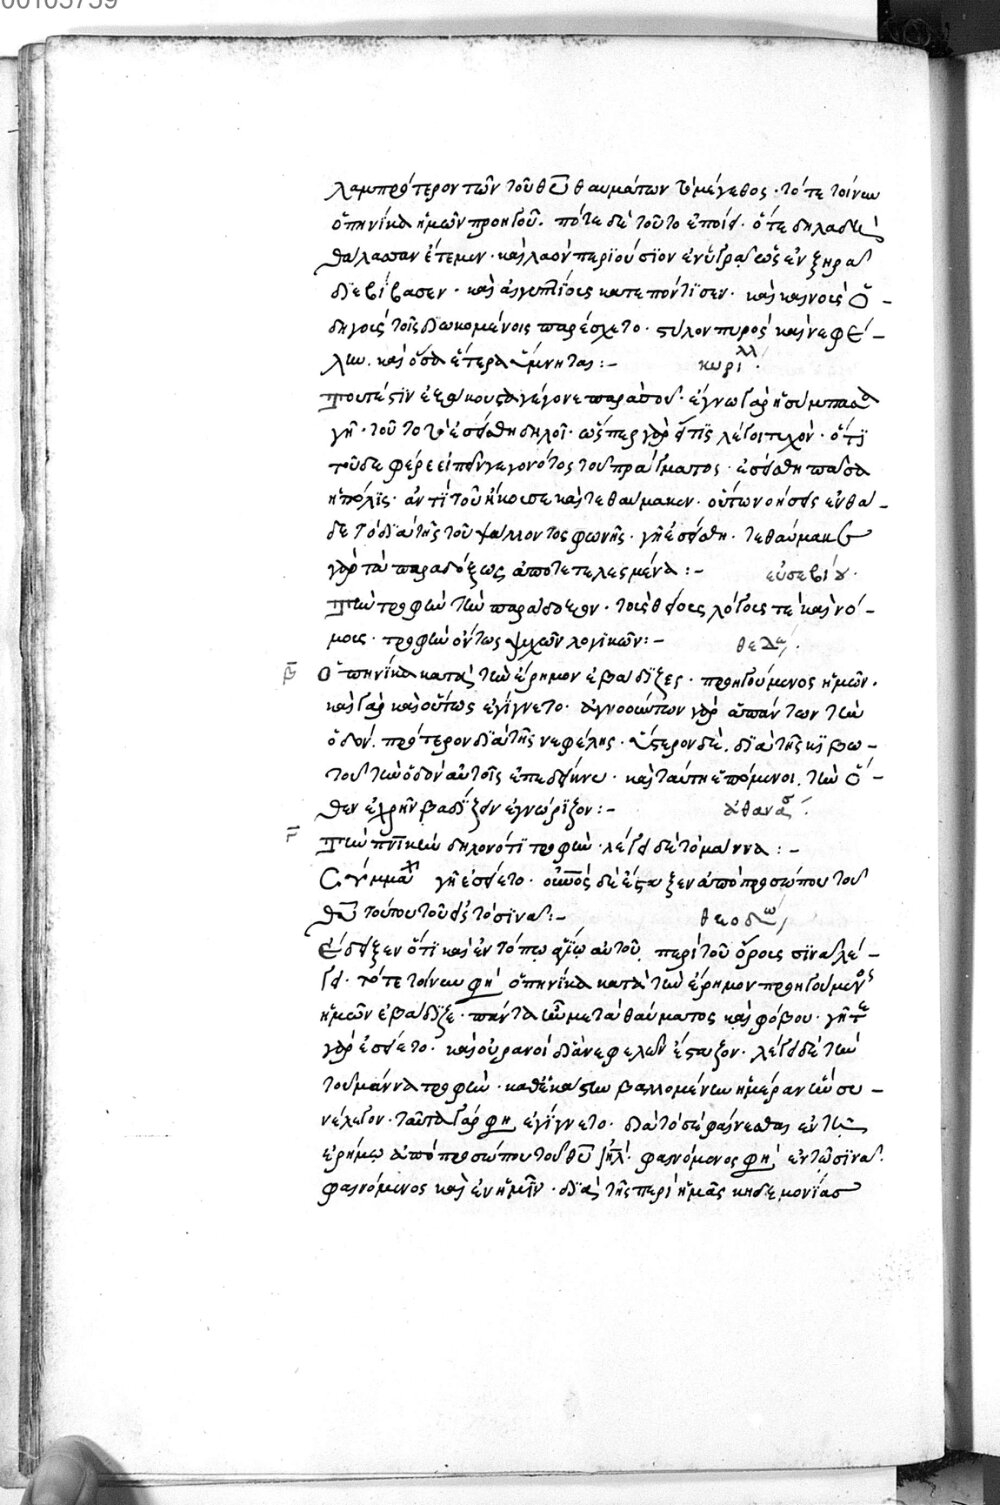 00105739
λαμπρότερον τῶν τοῦ θῦ θαυμάτων τὸ μέγεθος · τότε τοίνυν
ὁπηνίκα ἡμῶν προηγοῦ. πότε δὲ τοῦτο ἐποίει · ὅτε δηλαδὴ
θάλασσαν ἔτεμεν · καὶ λαὸν περιούσϊον ἐν ὕγρᾳ ὡς ἐν ξηρᾷ
διεβίβασεν · καὶ αἰγυπτίοις κατεπόντϊσεν · καὶ καινοῖς ὁ -
δηγοῖς τοῖς διωκομένοις παρέσχετο · στύλον πυρὸς καὶ νεφέ -
λην. καὶ ὅσα ἕτερα ὕμνησας : - κυρίλλ.
γέγονε παρὰ σοῦ · ἔγνω γὰρ ἡ σύμπασα
γῆ · τοῦτο τὸ ἐσείσθη δηλοῖ · ὥσπερ γὰρ εἴ τϊς λέγοι τυχὸν · ὅτϊ
τοῦδε φέρε εἰπεῖν γεγονότος τοῦ πράγματος · ἐσείσθη πᾶσα
ἡ πόλϊς · ἀντὶ τοῦ ἤκουσε καὶ τεθαύμακεν · οὕτω νοήσεις ἐνθά -
δε τὸ διὰ τῆς τοῦ ψάλλοντος φωνῆς · γῆ ἐσείσθη · τεθαύμακε
γὰρ τὰ παραδόξως ἀποτετελεσμένα : - εὐσεβίου ·
τοῖς θείοις λόγοις τὲ καὶ νό -
μοις · τροφὴν ὄντως ψυχῶν λογικῶν : - θεοδ
β Ὁπηνίκα κατὰ τὴν ἔρημον ἐβάδϊζες · προηγούμενος ἡμῶν ·
καὶ γὰρ καὶ οὕτως ἐγίγνετο · ἀγνοούντων γὰρ ἁπάντων τὴν
ὁδόν. πρότερον διὰ τῆς νεφέλης · ὕστερον δὲ. διὰ τῆς κϊβω -
τοῦ τὴν ὁδὸν αὐτοῖς ἐπεδείκνυ · καὶ ταύτῃ ἑπόμενοι. τὴν ὅ -
θεν ἐχρῆν βαδΐζειν ἐγνώρϊζον : - ἀθανασ
γ Τὴν πνικὴν δηλονότϊ τροφὴν · λέγει δὲ τὸ μάννα : -
Σύμμαχ γῆ ἐσείετο · οὐνὸς δὲ ἔσταξεν ἀπὸ προσώπου τοῦ
θῦ τούτου τοῦ εἰς τὸ σϊνᾶ : - θεοδω
Ἔδειξεν ὅτϊ καὶ ἐν τόπῳ ἁγίῳ αὐτοῦ. περὶ τοῦ ὄρους σϊνᾶ λέ -
γει · τότε τοίνυν φη ὁπηνίκα κατὰ τὴν ἔρημον προηγούμενος
ἡμῶν ἐβάδϊζε · πάντα ἦν μετὰ θαύματος καὶ φόβου · γῆ τε
γὰρ ἐσείετο · καὶ οὐρανοὶ διὰ νεφελῶν ἔσταξον · λέγει δὲ τὴν
τοῦ μάννα τροφὴν · καθ' ἑκάστην βαλλομένην ἡμέραν ἣν συ -
νέλεγον · ταῦτα γάρ φη ἐγίγνετο · διὰ τὸ σὲ φαίνεσθαι ἐν τῇ
ἐρήμῳ ἀπὸ προσώπου τοῦ θῦ ἰηλ · φαινόμενος φη ἐν τῷ σϊνᾶ ·
φαινόμενος καὶ ἐν ἡμῖν · διὰ τῆς περὶ ἡμᾶς κηδεμονίας